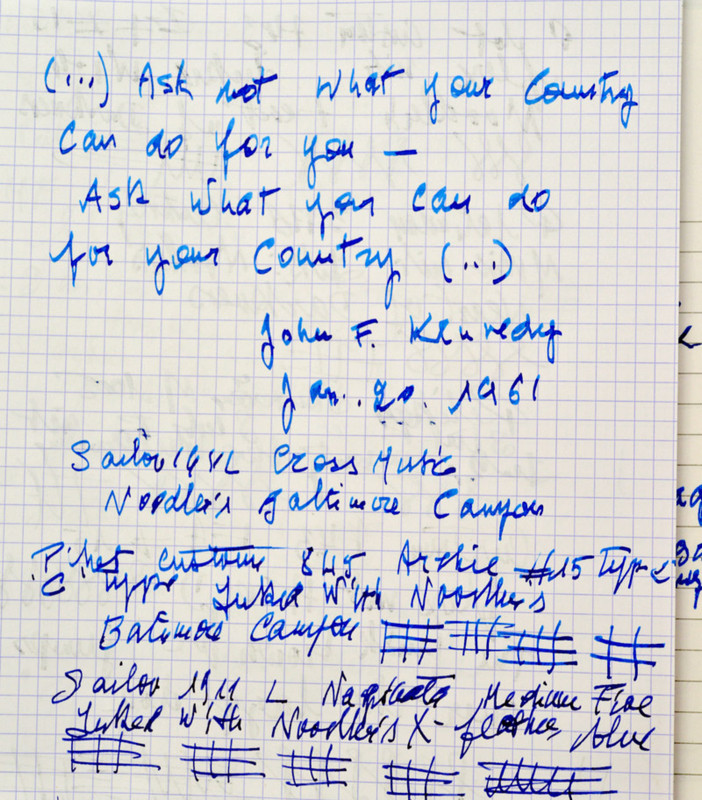 (...) Ask not what your Country
Can do for you —
Ask what you can do
for your Country (...)
John F. Kennedy
Jan. 20. 1961
Sailor 1911L Cross Music
Noodler's Baltimore Canyon
Pilot Custom 845 #15 Type
"C" Type Inked With Noodlers
Batimore Canyon
Sailor 1911 L Naginata Medium Fine
Inked With Noodler's X-feather blue